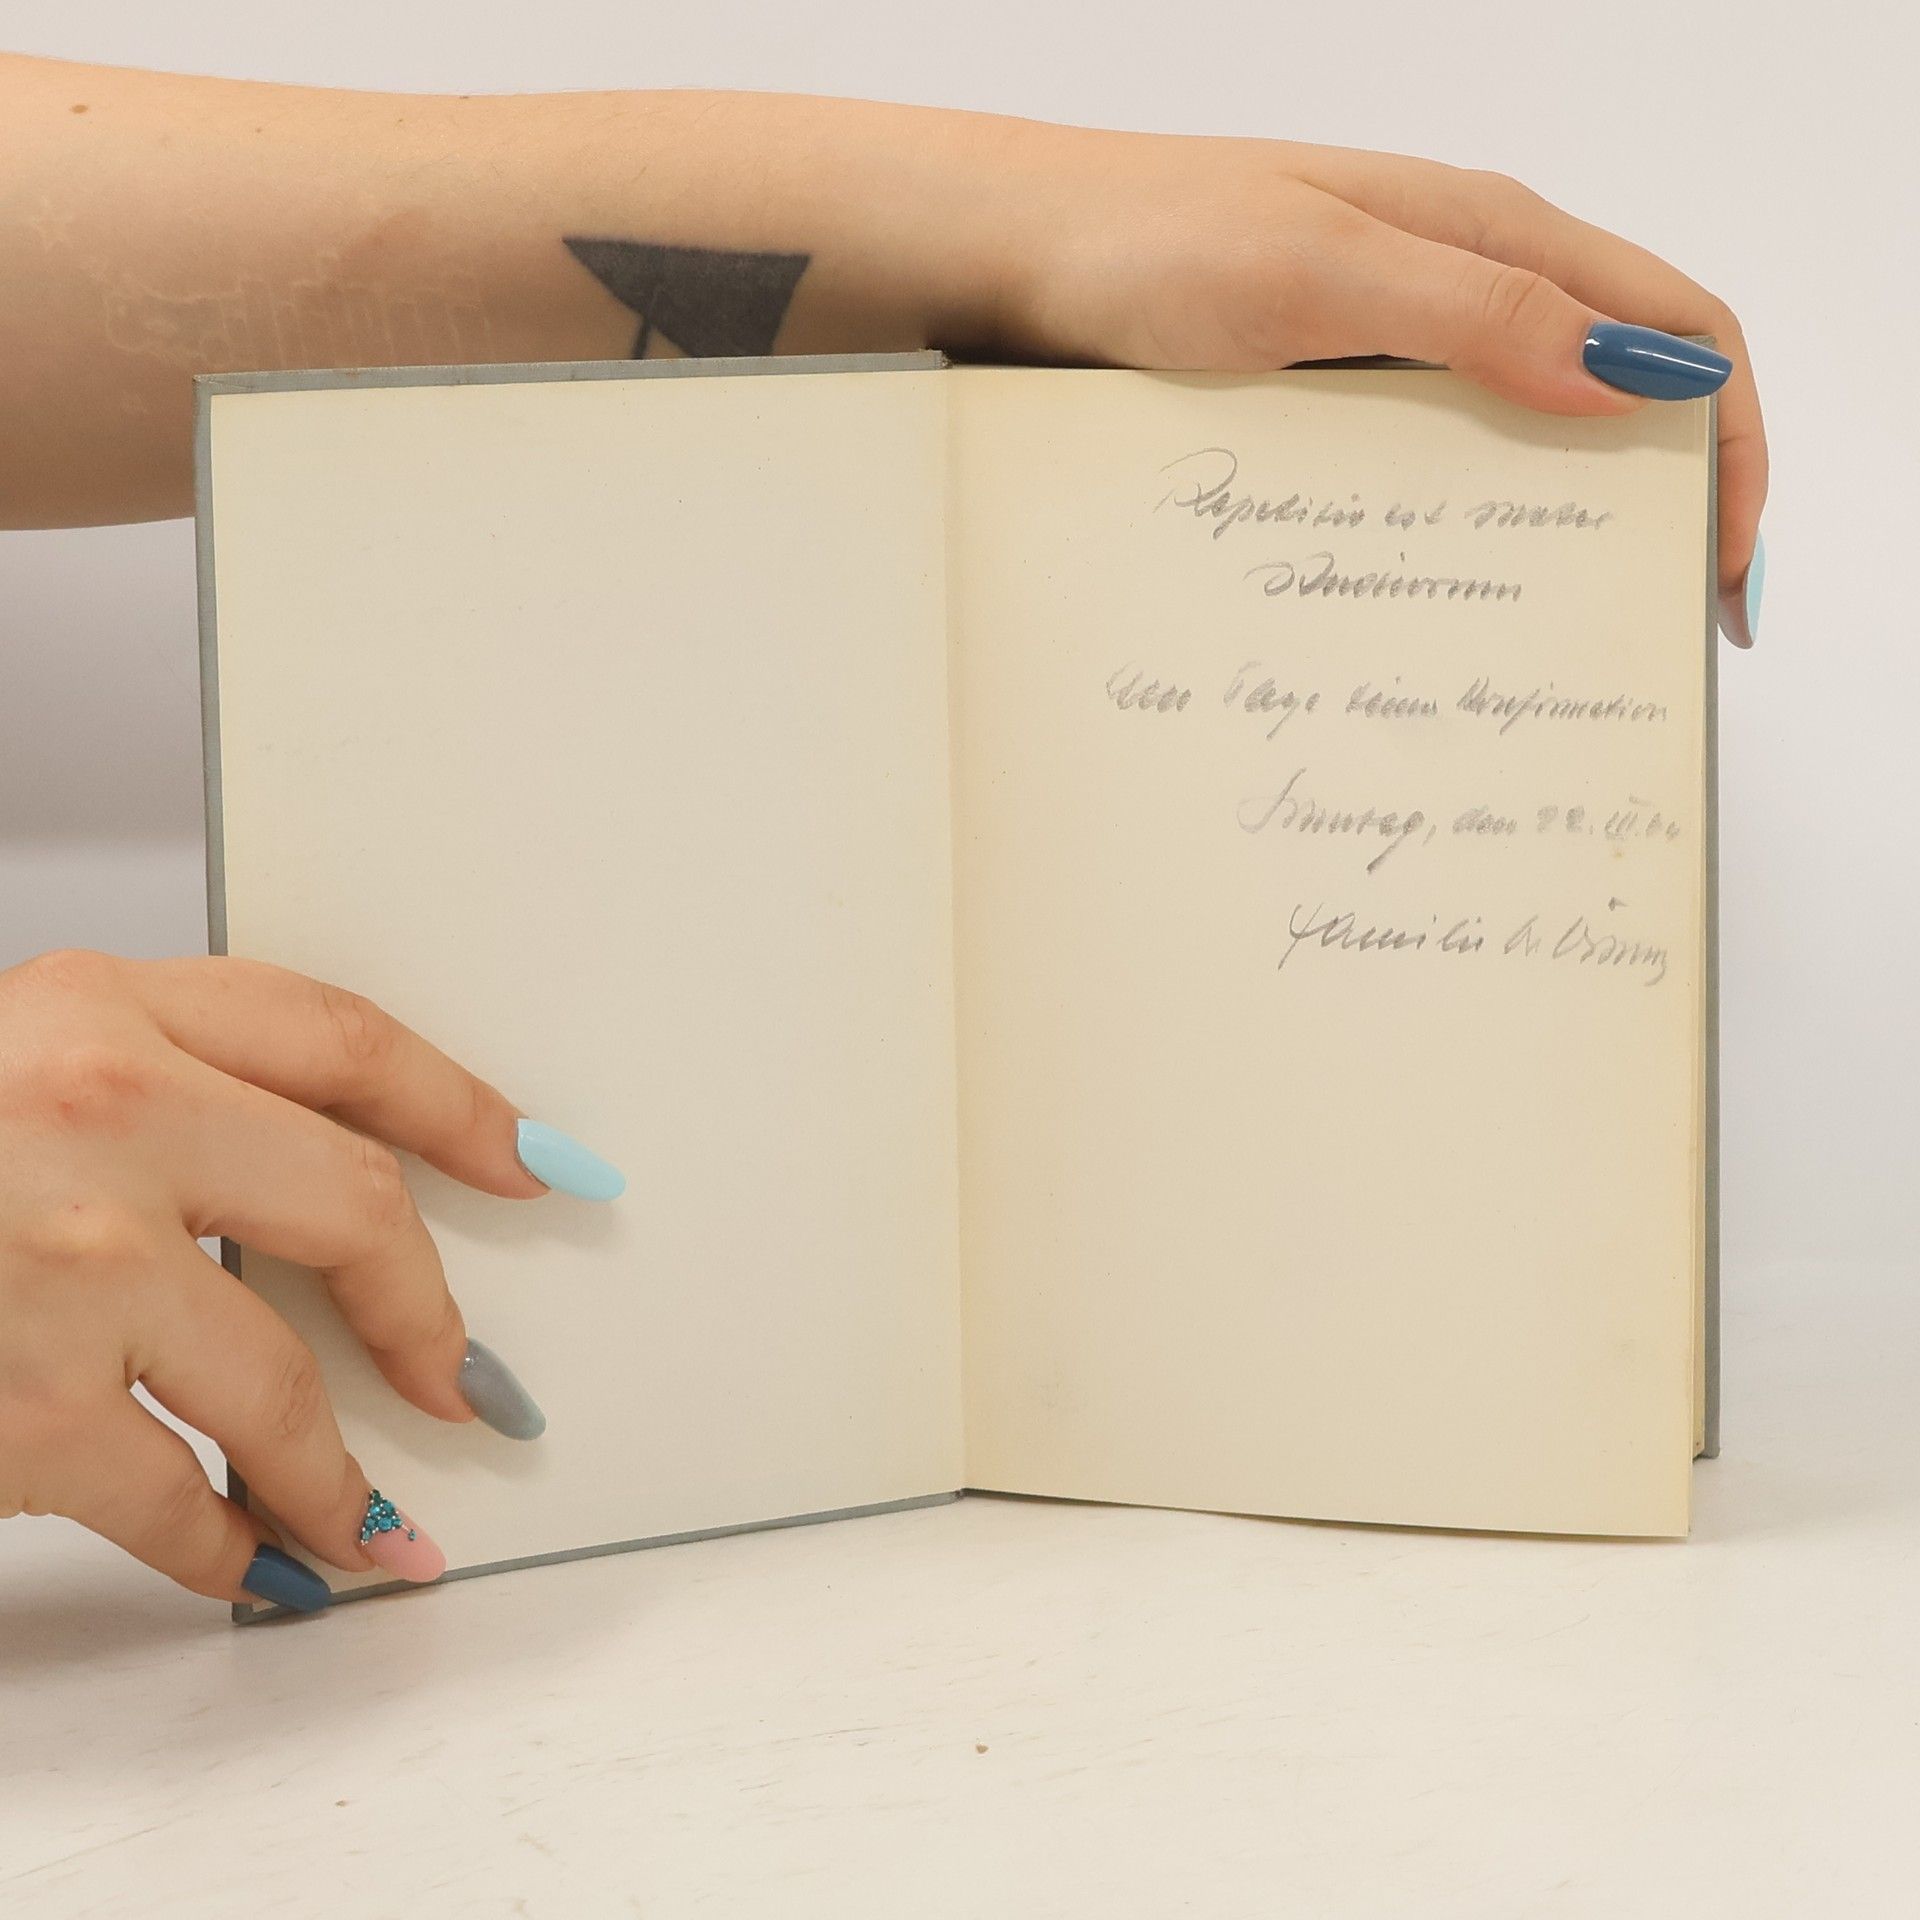 Repetitio est mater
studiorum
Am Tage deiner Konfirmation
Sonntag, den 22. III. 64
Familie Dr.